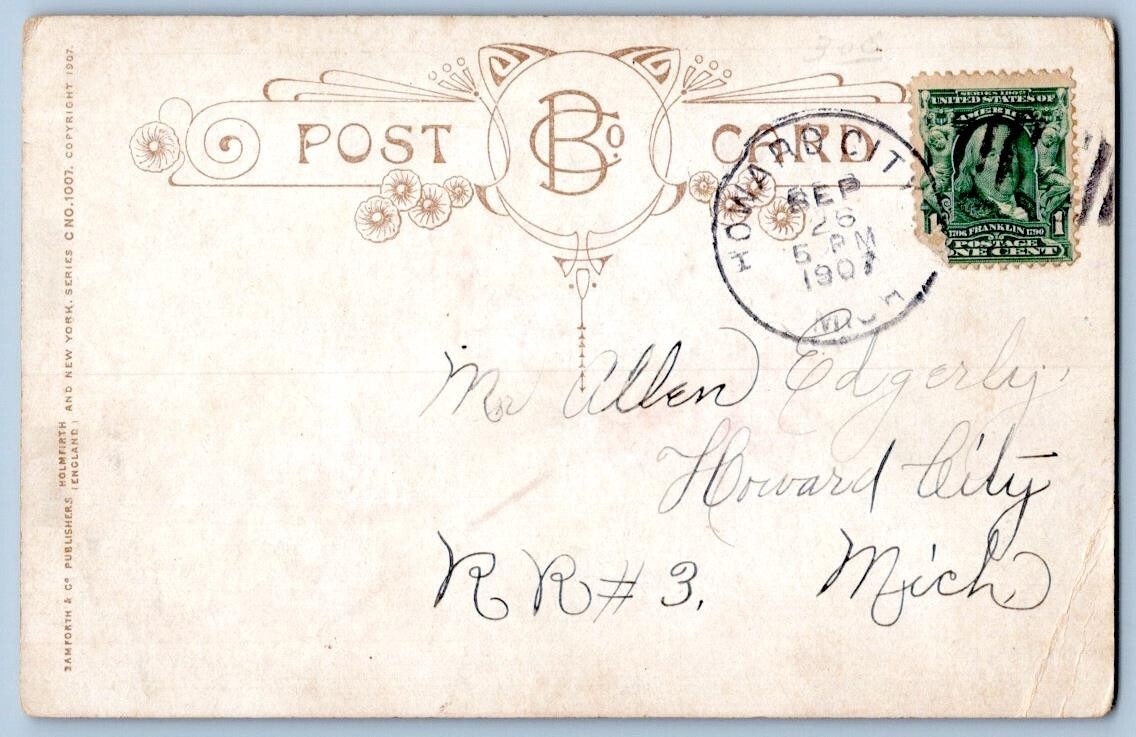 300
POST BCo. CARD
HOWARD CITY
SEP
26
5 PM
1907
MICH
SERIES 1902
UNITED STATES OF
AMERICA
1 1
1706 FRANKLIN 1790
POSTAGE
ONE CENT
Mr Allen Edgerly,
Howard City
R R # 3. Mich.
BAMFORTH & Co PUBLISHERS HOLMFIRTH (ENGLAND) AND NEW YORK. SERIES C NO. 1007. COPYRIGHT 1907.